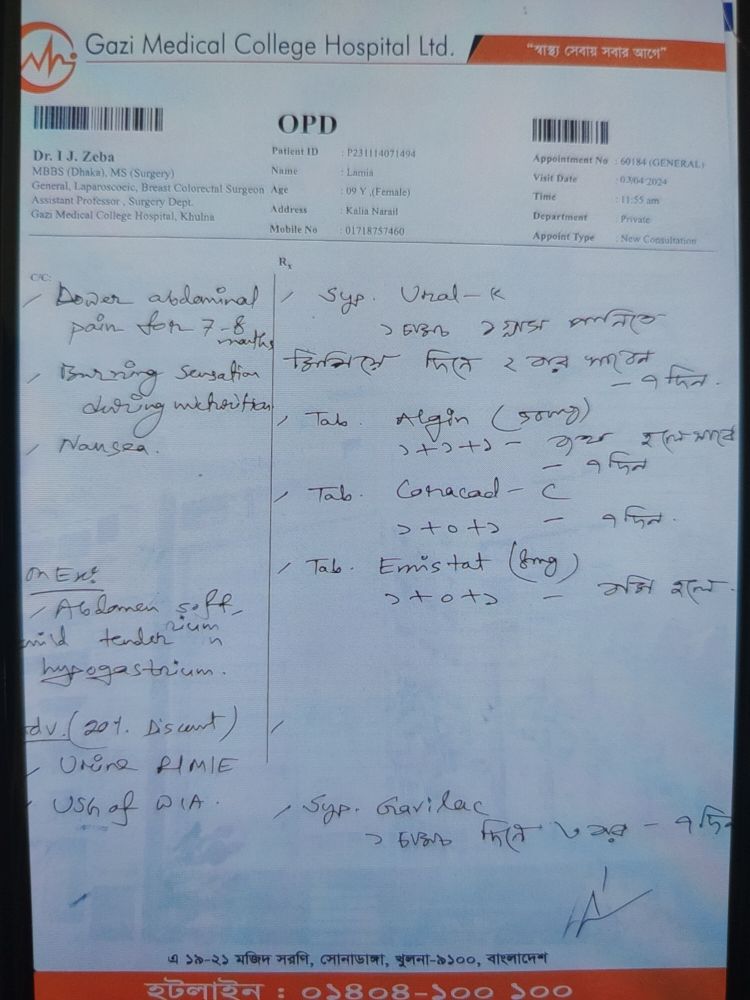 Gazi Medical College Hospital Ltd.
"স্বাস্থ্য সেবায় সবার আগে"
OPD
Dr. I J. Zeba
MBBS (Dhaka), MS (Surgery)
General, Laparoscoeic, Breast Colorectal Surgeon
Assistant Professor , Surgery Dept.
Gazi Medical College Hospital, Khulna
Patient ID : P231114071494
Name : Lamia
Age : 09 Y ,(Female)
Address : Kalia Narail
Mobile No : 01718757460
Appointment No : 60184 (GENERAL)
Visit Date : 03/04/2024
Time : 11:55 am
Department : Private
Appoint Type : New Consultation
C/C:
Lower abdominal
pain for 7-8
months
Burning sensation
during micturition
Nausea.
On Ex:
Abdomen soft,
mild tender in
hypogastrium.
Adv. (20% Discount)
Urine R/M/E
USG of W/A.
Rx
Syp. Ural-K
১ চামচ ১ গ্লাস পানিতে
মিশিয়ে দিনে ২ বার খাবেন
- ৭ দিন.
Tab. Algin (50mg)
১+১+১ - ব্যথা হলে খাবে
- ৭ দিন
Tab. - C
১+০+১ - ৭ দিন.
Tab. Emistat (8mg)
১+০+১ - বমি হলে.
Syp. Gavilac
১ চামচ দিনে ৩ বার - ৭ দিন
এ ১৯-২১ মজিদ সরণি, সোনাডাঙ্গা, খুলনা-৯১০০, বাংলাদেশ
হটলাইন : ০১৪০৪-১০০ ১০০